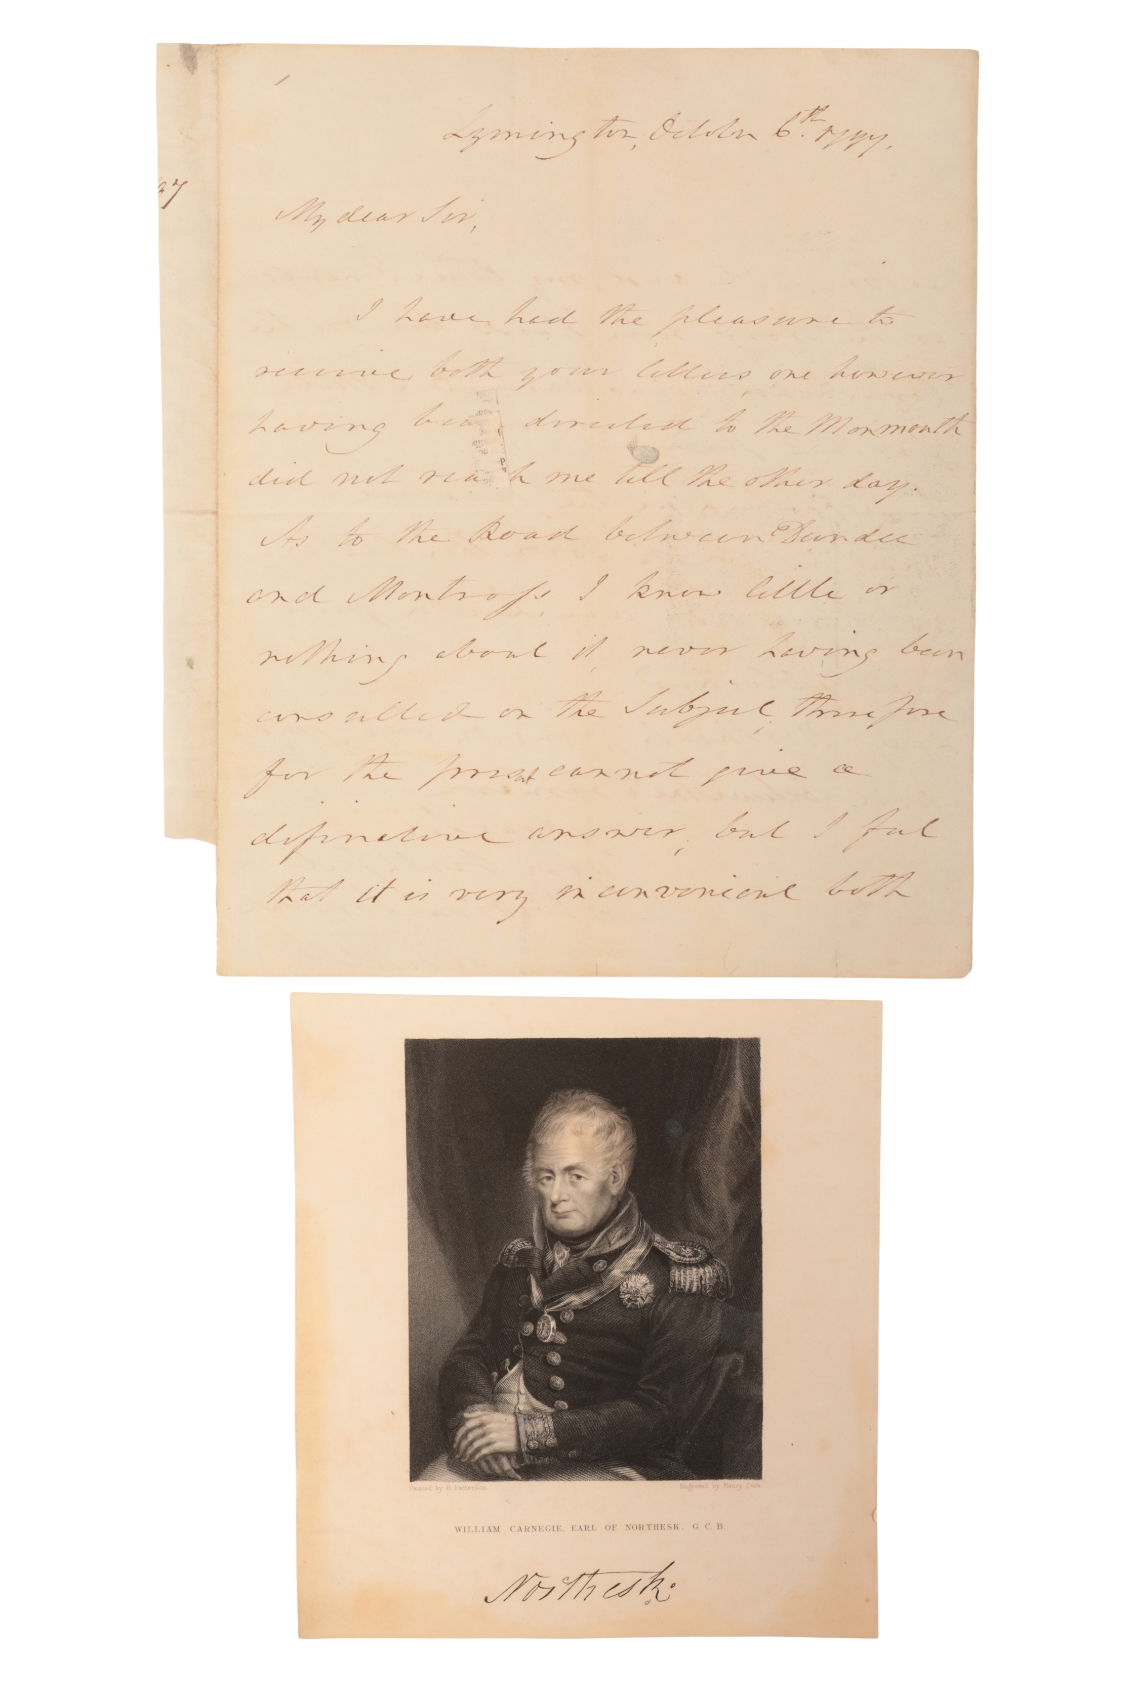 27
Lymington, October 6th. 1797.
My dear Sir,
I have had the pleasure to
receive both your letters, one however
having been directed to the Monmouth
did not reach me till the other day.
As to the Road between Dundee
and Montross, I know little or
nothing about it, never having been
consulted on the Subject, therefore
for the present cannot give a
difinetive answer, but I feel
that it is very inconvenient both
Painted by H. Patterson
Engraved by Henry Cook
WILLIAM CARNEGIE, EARL OF NORTHESK, G. C. B.
Northesk